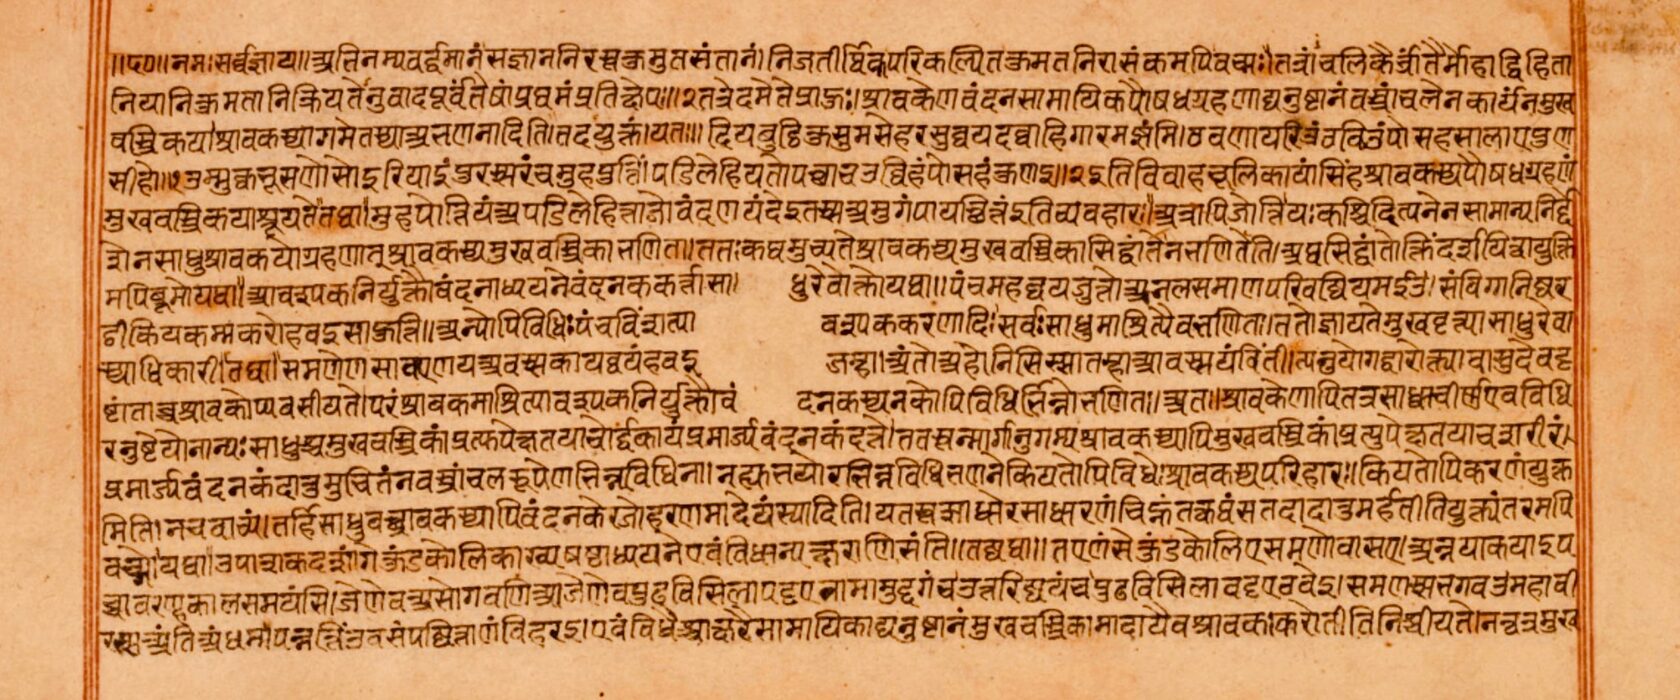 ॥ए०॥नमः सर्वज्ञाय॥ प्रतिनम्य वर्द्धमानं सज्ञाननिरस्तकुमतसंतानं। निजतीर्थिकपरिकल्पितकुमतनिरासं कमपि वक्ष्मः॥ तत्रांचलिकैर्जीतैर्मोहाद्विहिता
नि यानि कुमतानि क्रियतेनुवादपूर्वं तेषां प्रथमं प्रतिक्षेपः॥२ तत्रेदमेते प्राऊः। श्रावकेण वंदनसामायिकपौषधग्रहणाद्यनुष्ठानं वस्त्रांचलेन कार्यं न मुख
वस्त्रिकया श्रावकस्यागमे तस्या अभणनादिति। तदयुक्तं। यतः॥ दिय कुसुमसेहर सुव्वय दव्वाहिगारमज्झंमि। ठवणायरिअं ठविउं पोसहसालाए पुण
सीहो॥१ उम्मुक्कभूसणो सो इरियाइपुरस्सरं च मुहपुत्तिं। पडिलेहिय तो पच्छा चउव्विहं पोसहं कुणइ॥२ इति विवाहचूलिकायां सिंहश्रावकस्य पौषधग्रहणं
मुखवस्त्रिकया श्रूयते तथा। मुहपोत्तियं अपडिलेहित्ता जो वंदणयं देइ तस्स अमुगं पायच्छित्तं इति व्यवहारः। अत्रापि जोत्ति यः कश्चिदित्यनेन सामान्यनिर्दे
शेन साधुश्रावकयोर्ग्रहणात् श्रावकस्य मुखवस्त्रिका भणिता। ततः कथमुच्यते श्रावकस्य मुखवस्त्रिका सिद्धांते न भणितेति। अथ सिद्धांतोक्तिं दर्शयित्वा युक्ति
मपि ब्रूमो यथा॥ आवश्यकनिर्युक्तौ वंदनाध्ययने वंदनककर्त्ता सा धुरेवोक्तो यथा॥ पंचमहव्वयजुत्तो अनलस माणपरिवज्जियमईउ। संविगानिज्जर
ठी किइकम्मकरो हवइ साहुत्ति॥ अन्योपि विधिः पंचविंशत्या वश्यककरणादिः सर्वः साधुमाश्रित्यैव भणितः। ततो ज्ञायते मुखवस्त्र्या साधुरेवा
स्याधिकारी। तथा॥ समणेण सावएण य अवस्सकायव्वयं हवइ जम्हा। अंतो अहोनिसिस्सा तम्हा आवस्सयं बिंती। त्यनुयोगद्वारोक्त्या वासुदेवदृ
ष्टांताच्च श्रावकोप्यवसीयते। परं श्रावकमाश्रित्यावश्यकनिर्युक्तौ वं दनकस्य न कोपि विधिर्भिन्नो भणितः। अतः। श्रावकेणापि तत्र साध्वाचीर्ण एव विधि
रनुष्ठेयो नान्यः साधुश्च मुखवस्त्रिकां प्रत्युपेक्ष्य तया चोर्द्ध्वकायं प्रमार्ज्य वंदनकं दत्ते। ततस्तन्मार्गानुगम्य श्रावकस्यापि मुखवस्त्रिकां प्रत्युपेक्ष्य तया च शरीरं
प्रमार्ज्य वंदनकं दातुमुचितं न वस्त्रांचलरूपेण भिन्नविधिना। न ह्युभयोरभिन्नविधिभणने कियतोपि विधेः श्रावकस्य परिहारः। कियतोपि करणं युक्त
मिति। न च वाच्यं। तर्हि साधुवच्छ्रावकस्यापि वंदनके रजोहरणमादेयं स्यादिति। यतस्तस्साधोरसाधारणं चिह्नं तत्कथं स तदादातुमर्हतीति युक्त्यंतरमपि
वक्ष्मो यथा। उपाशकदशांगे कुंडकोलिकाख्यषष्ठाध्ययने एवंविधान्यक्षराणि संति। तद्यथा॥ तएणं से कुंडकोलिए समणोवासए। अन्नया कयाइ प
च्चावरण्हकालसमयंसि। जेणेव असोगवणिआ जेणेव पुढविसिलापट्टए नामामुद्दगं च उत्तरिज्जयं च पुढविसिलावट्टए ठवेइ। समणस्स भगवउ महावी
रस्स अंतिअं धम्मपन्नत्तिं उवसंपज्जित्ताणं विहरइ। एवंविधैश्चाक्षरैः सामायिकाद्यनुष्ठानं मुखवस्त्रिकामादायैव श्रावकः करोतीति निश्चीयते। नन्वत्र मुख